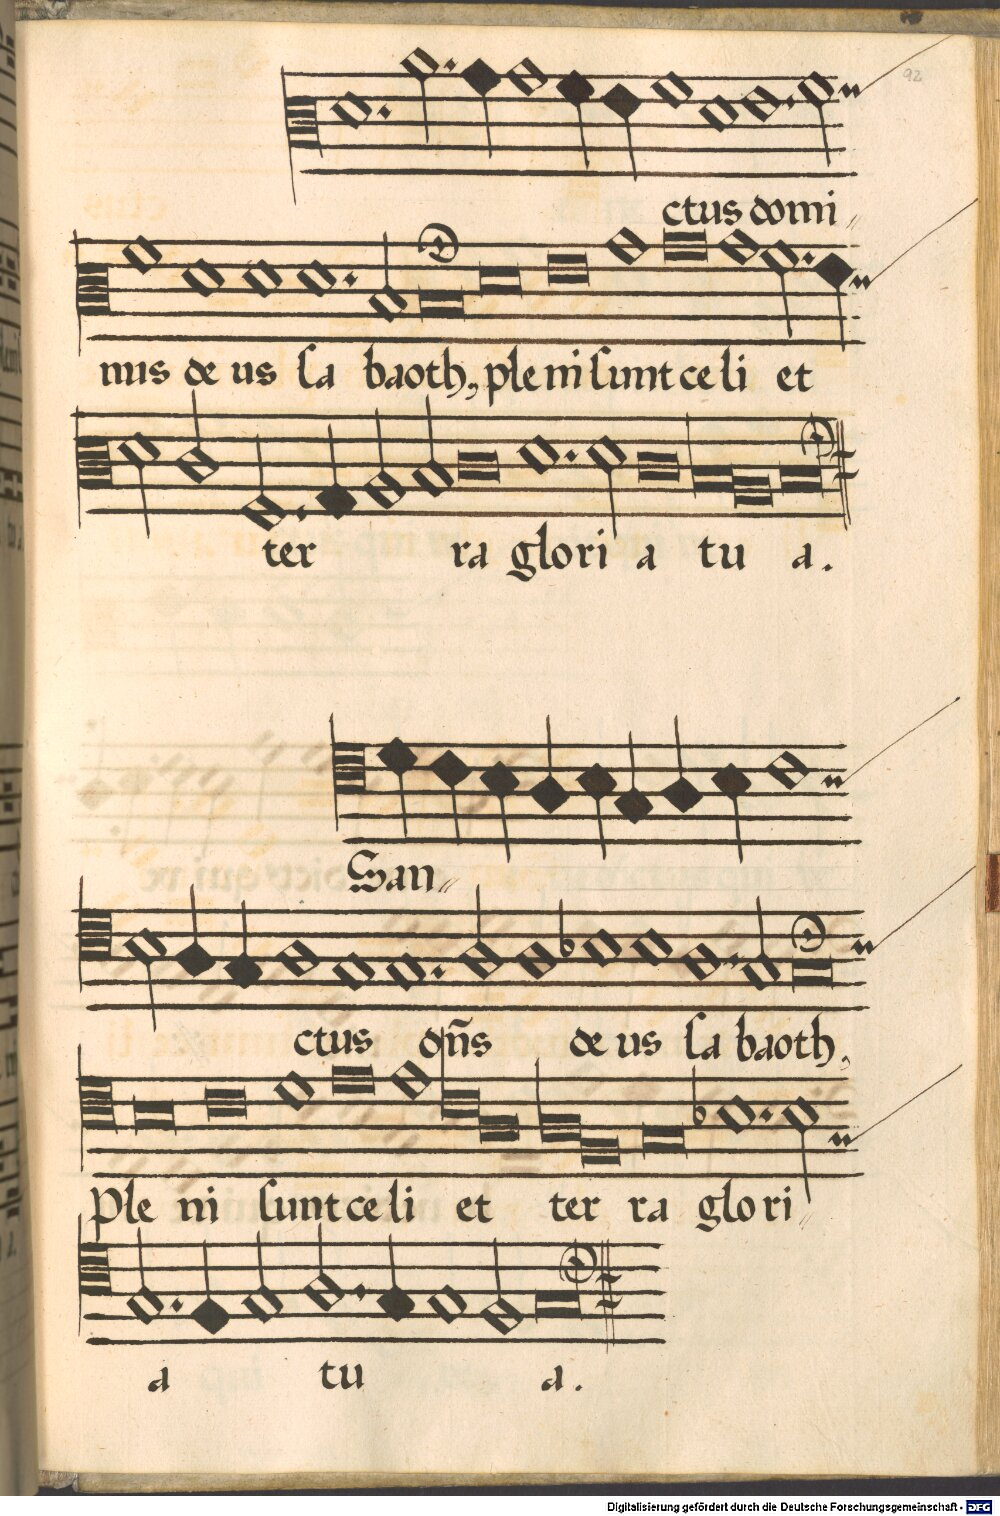 92
ctus domi
nus de us sa baoth, ple ni sunt ce li et
ter ra glori a tu a.
San
ctus dñs de us sa baoth,
Ple ni sunt ce li et ter ra glo ri
a tu a.
Digitalisierung gefördert durch die Deutsche Forschungsgemeinschaft - DFG